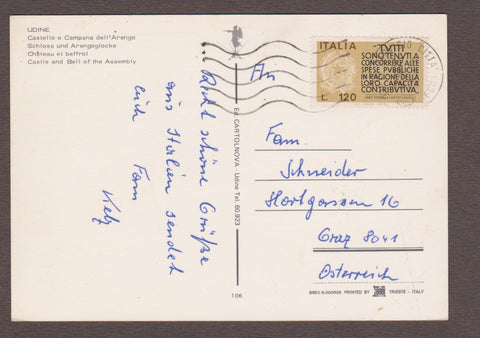 UDINE
Castello e Campana dell'Arengo
Schloss und Arengoglocke
Château et beffroi
Castle and Bell of the Assembly
... Recht schöne Grüße
aus Italien sendet
Euch Fam
Ed. CARTOLNOVA - Udine Tel. 60.923
106
An
Fam.
Schneider
16
Graz 8041
Österreich
ITALIA
TUTTI
SONO TENUTI A
CONCORRERE ALLE
SPESE PUBBLICHE
IN RAGIONE DELLA
LORO CAPACITÀ
CONTRIBUTIVA.
L. 120
BREV. N. 000925 PRINTED BY TRIESTE - ITALY